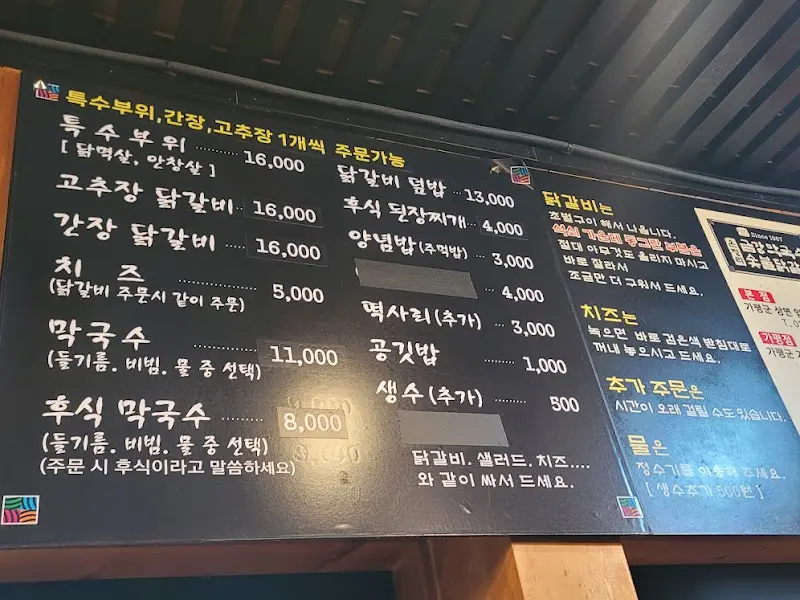 특수부위,간장,고추장 1개씩 주문가능
특수부위 ········ 16,000
[ 닭목살, 안창살 ]
고추장 닭갈비 16,000
간장 닭갈비 ······ 16,000
치 즈 ········ 5,000
(닭갈비 주문시 같이 주문)
막국수 ········ 11,000
(들기름. 비빔. 물 중 선택)
후식 막국수 ······ 8,000
(들기름. 비빔. 물 중 선택)
(주문 시 후식이라고 말씀하세요)
닭갈비 덮밥 ··· 13,000
후식 된장찌개 ·· 4,000
양념밥(주먹밥) ···· 3,000
4,000
떡사리(추가) ···· 3,000
공깃밥 ········ 1,000
생수(추가) ········ 500
닭갈비. 샐러드. 치즈....
와 같이 싸서 드세요.
닭갈비는
초벌구이 해서 나옵니다.
석쇠 가운데 동그란 부분은
절대 아무것도 올리지 마시고
바로 잘라서
조금만 더 구워서 드세요.
치즈는
녹으면 바로 검은색 받침대로
꺼내 놓으시고 드세요.
추가 주문은
시간이 오래 걸릴 수도 있습니다.
물은
정수기를 이용해 주세요.
[ 생수추가 500원 ]
Since 1987
금강막국수
숯불닭갈
본 점
가평군 상면
T.0
가평점
가평군